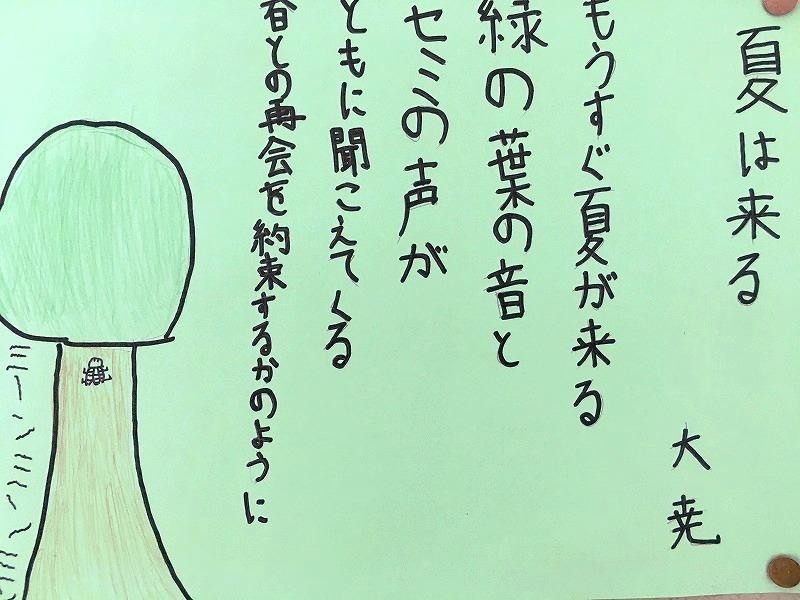 夏は来る
大尭
もうすぐ夏が来る
緑の葉の音と
セミの声が
ともに聞こえてくる
春との再会を約束するかのように
ミーンミンミン